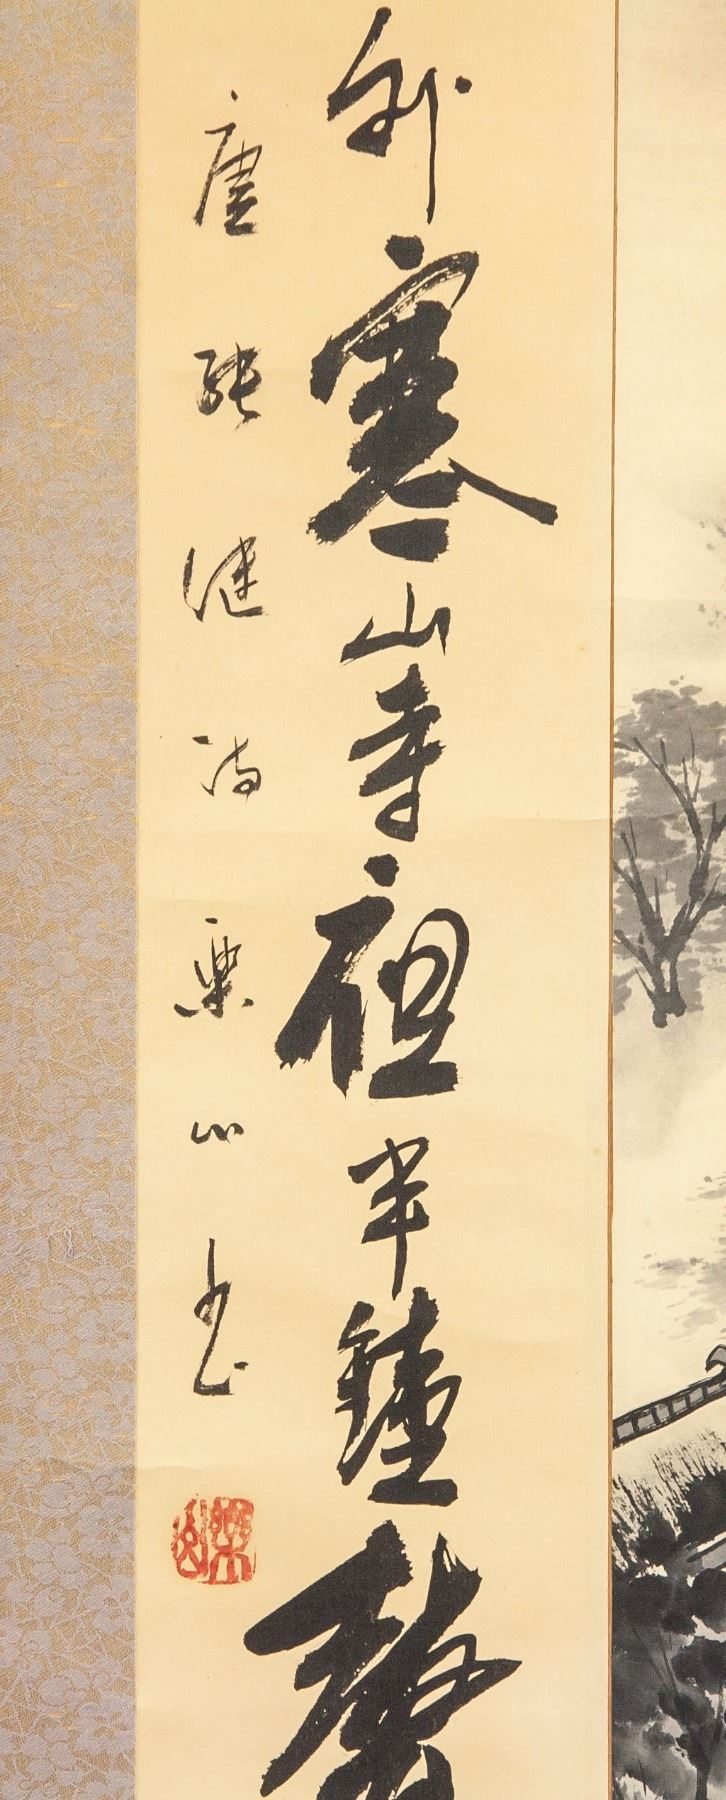 外寒山寺夜半鐘聲
唐張繼詩樂山書
樂山